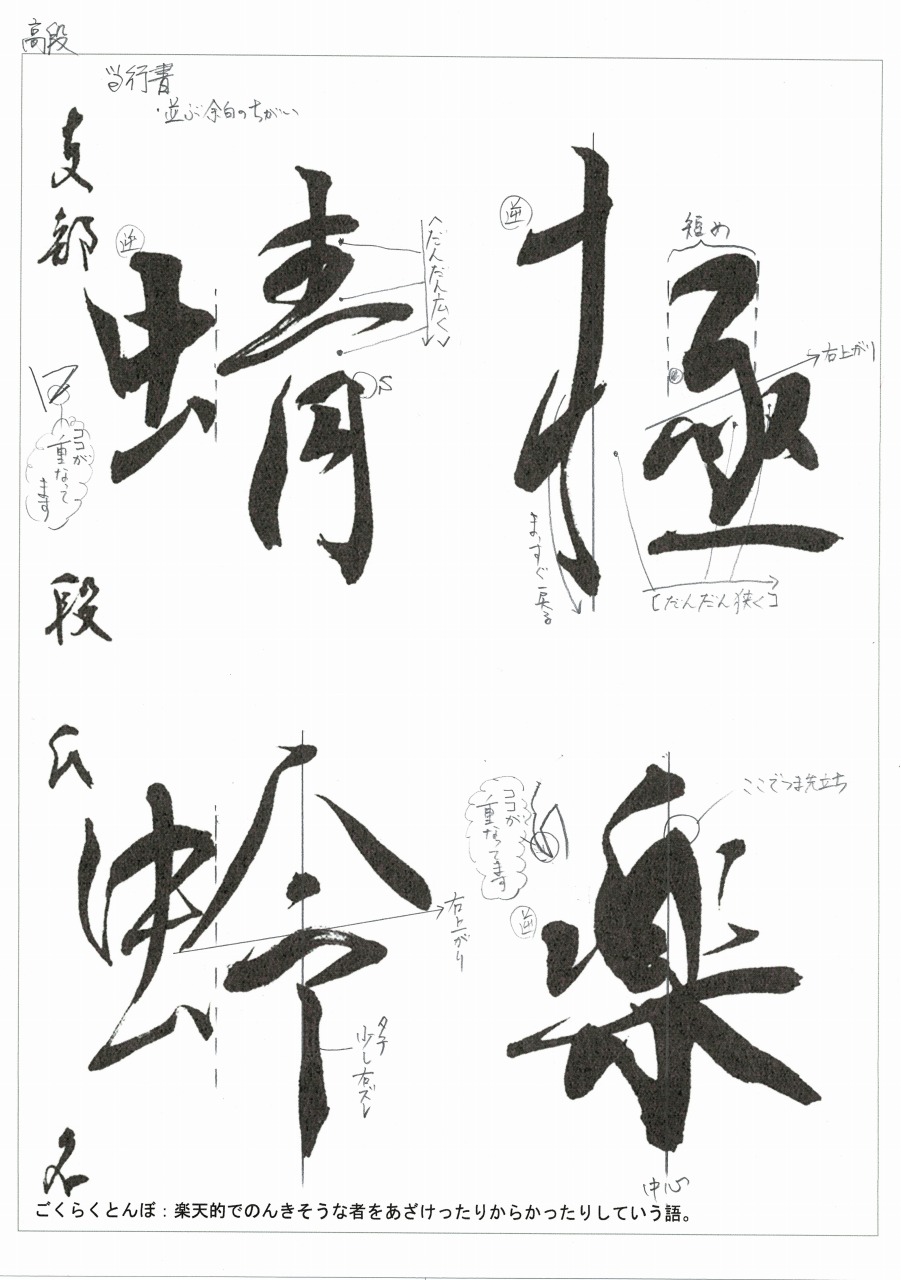 高段
行書
・並ぶ余白のちがい
極
楽
蜻
蛉
支部
段
氏
名
逆
短め
右上がり
まっすぐ戻る
[だんだん狭く]
逆
だんだん広く
S
ココが
重なって
ます
ここでつま先立ち
ココが
重なってます
逆
中心
右上がり
タテ
少し右ズレ
ごくらくとんぼ：楽天的でのんきそうな者をあざけったりからかったりしていう語。